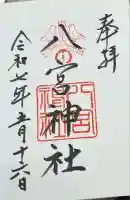 奉拝
八宮神社
令和七年五月十六日